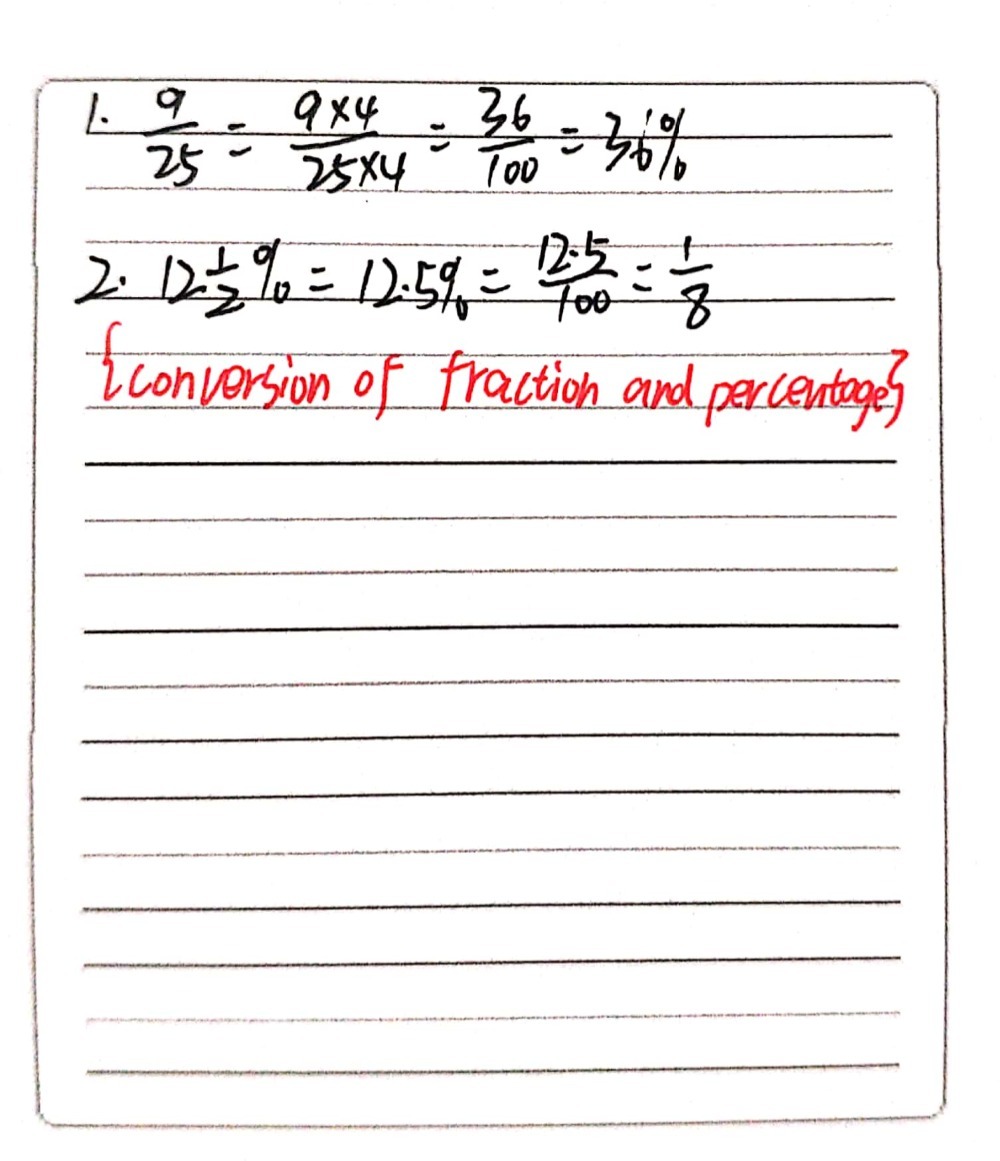 1. 9/25 = 9×4/25×4 = 36/100 = 36%
2. 12 1/2% = 12.5% = 12.5/100 = 1/8
{conversion of fraction and percentage}